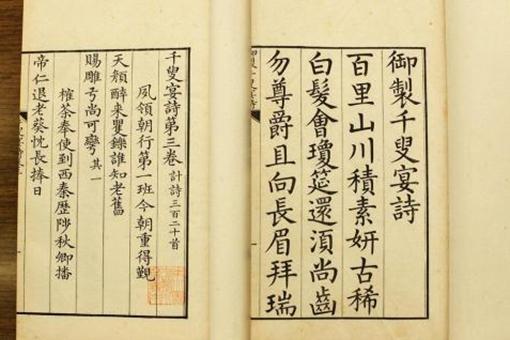 御製千叟宴詩
百里山川積素妍古稀
白髮會瓊筵還須尚齒
勿尊爵且向長眉拜瑞
千叟宴詩第三卷 計詩三百二十首
夙領朝行第一班今朝重得覲
天顏醉來矍鑠誰知老舊
賜雕弓尚可彎 其一
榷茶奉使到西秦歷陟秋卿播
帝仁退老葵忱長捧日